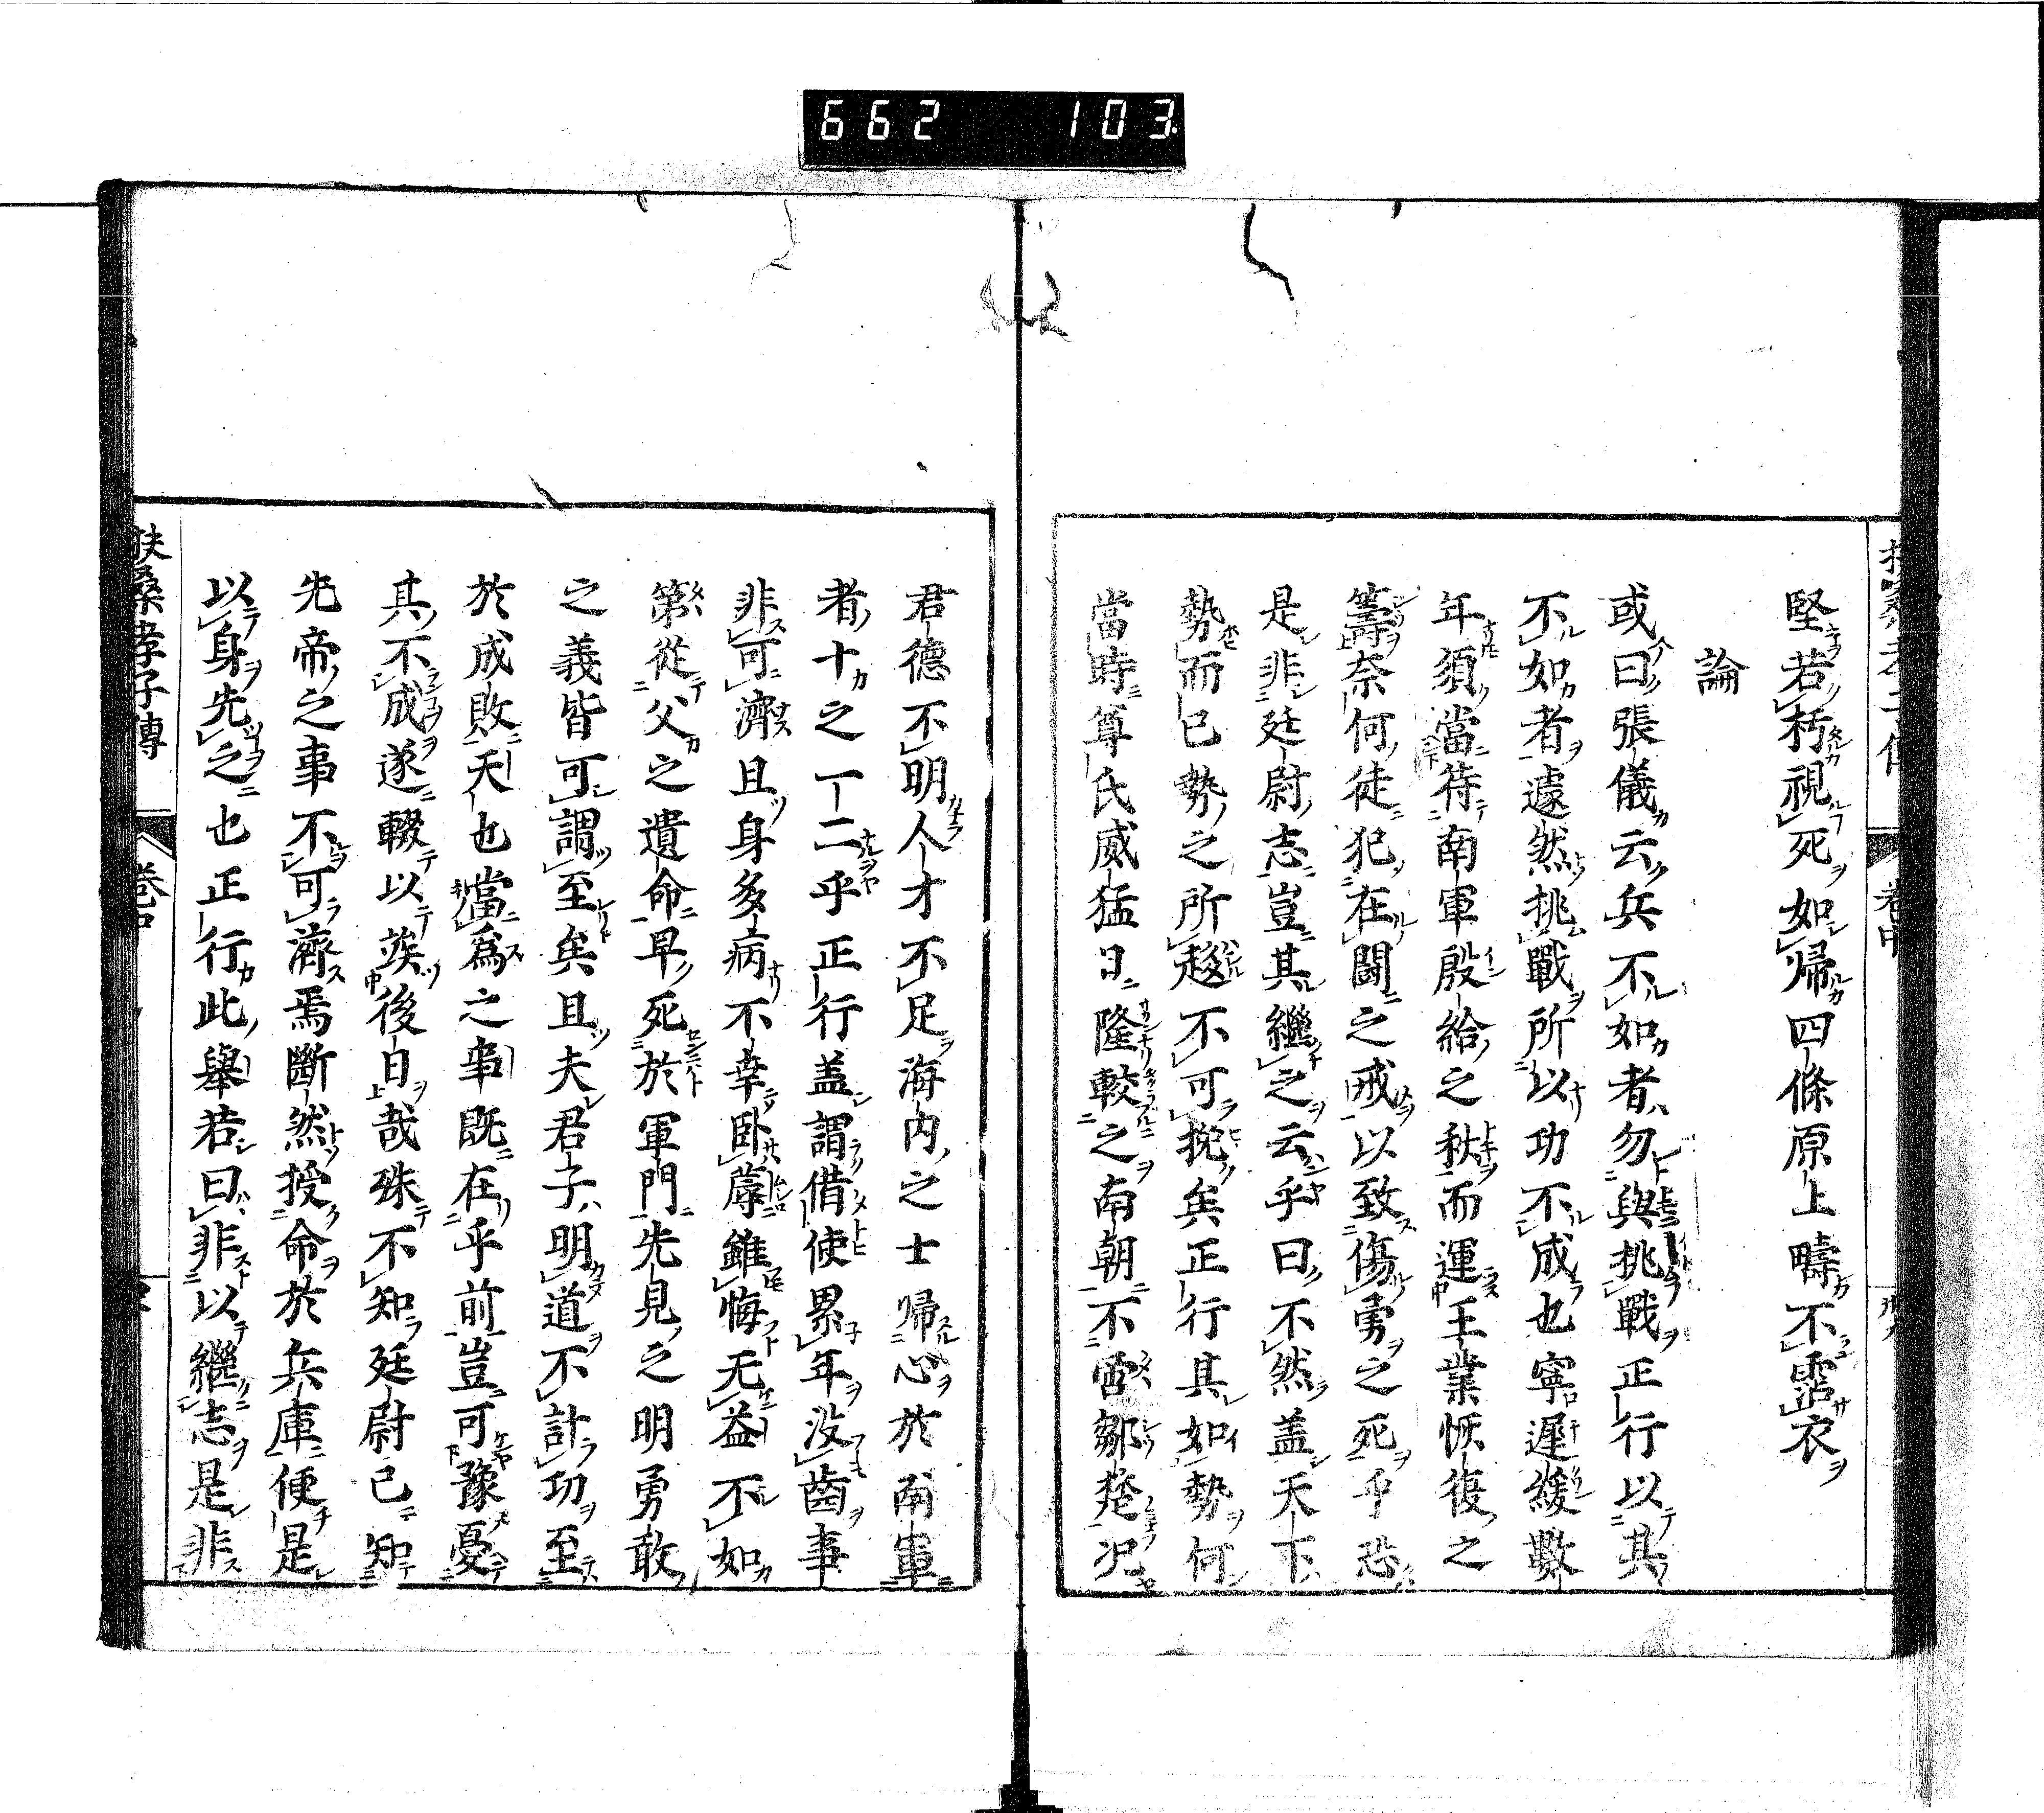 662 103
堅若朽視死如帰四條原上疇不霑衣
論
或曰張儀云兵不如者勿與挑戰正行以其
不如者遽然挑戰所以功不成也寧遲緩數
年須當待南軍殷給之秋而運王業恢復之
籌奈何徒犯在鬪之戒以致傷勇之死乎恐
是非廷尉志豈其繼之云乎曰不然盖天下
勢而已勢之所趍不可挽矣正行其如勢何
當時尊氏威猛日隆較之南朝不啻鄒楚况
君德不明人才不足海内之士帰心於南軍
者十之一二乎正行盖謂借使累年没齒事
非可濟且身多病不幸卧蓐雖悔无益不如
第從父之遺命早死於軍門先見之明勇敢
之義皆可謂至矣且夫君子明道不計功至
於成敗天也當為之事既在乎前豈可豫憂
其不成遂輟以竢後日哉殊不知廷尉已知
先帝之事不可濟焉斷然授命於兵庫便是
以身先之也正行此舉若曰非以繼志是非
扶桑孝子傳 卷中